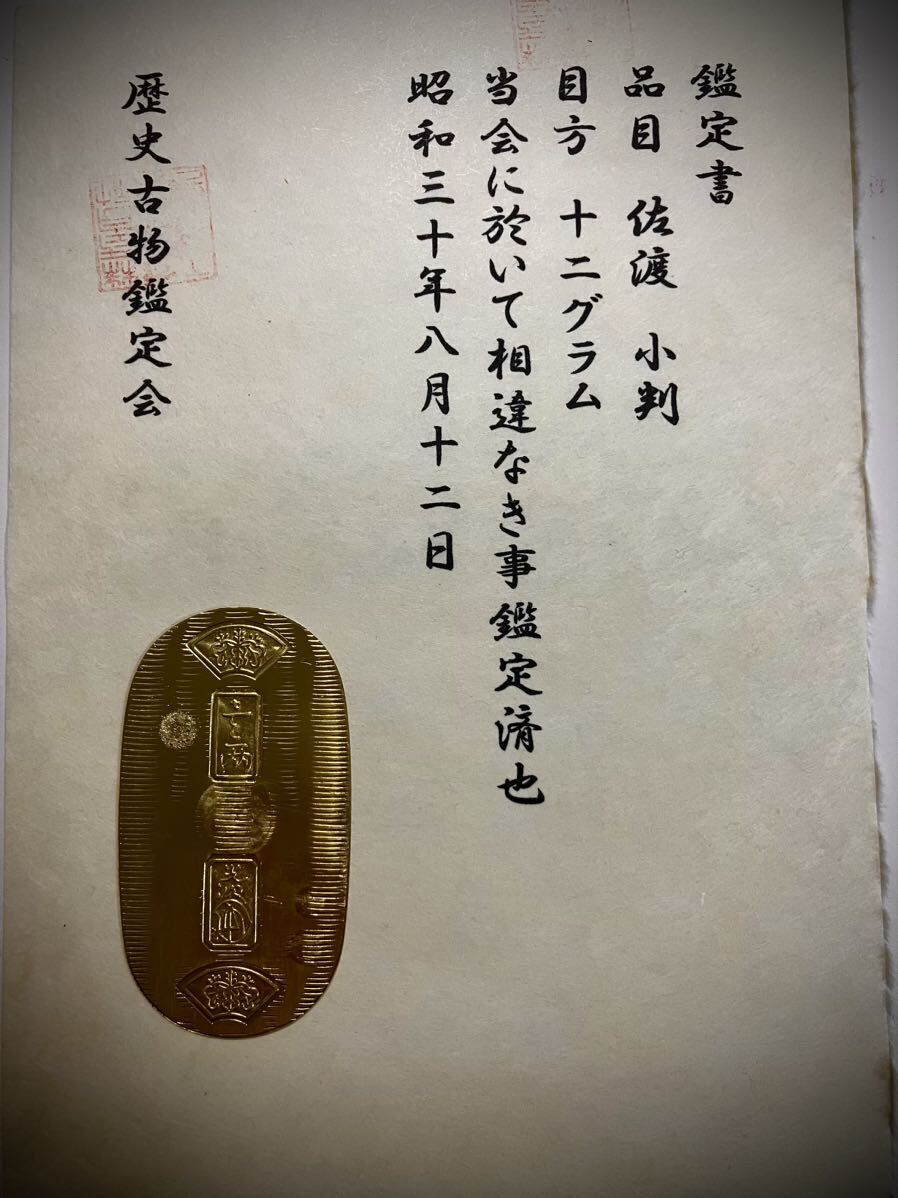 鑑定書
品目 佐渡 小判
目方 十二グラム
当会に於いて相違なき事鑑定済也
昭和三十年八月十二日
歴史古物鑑定会